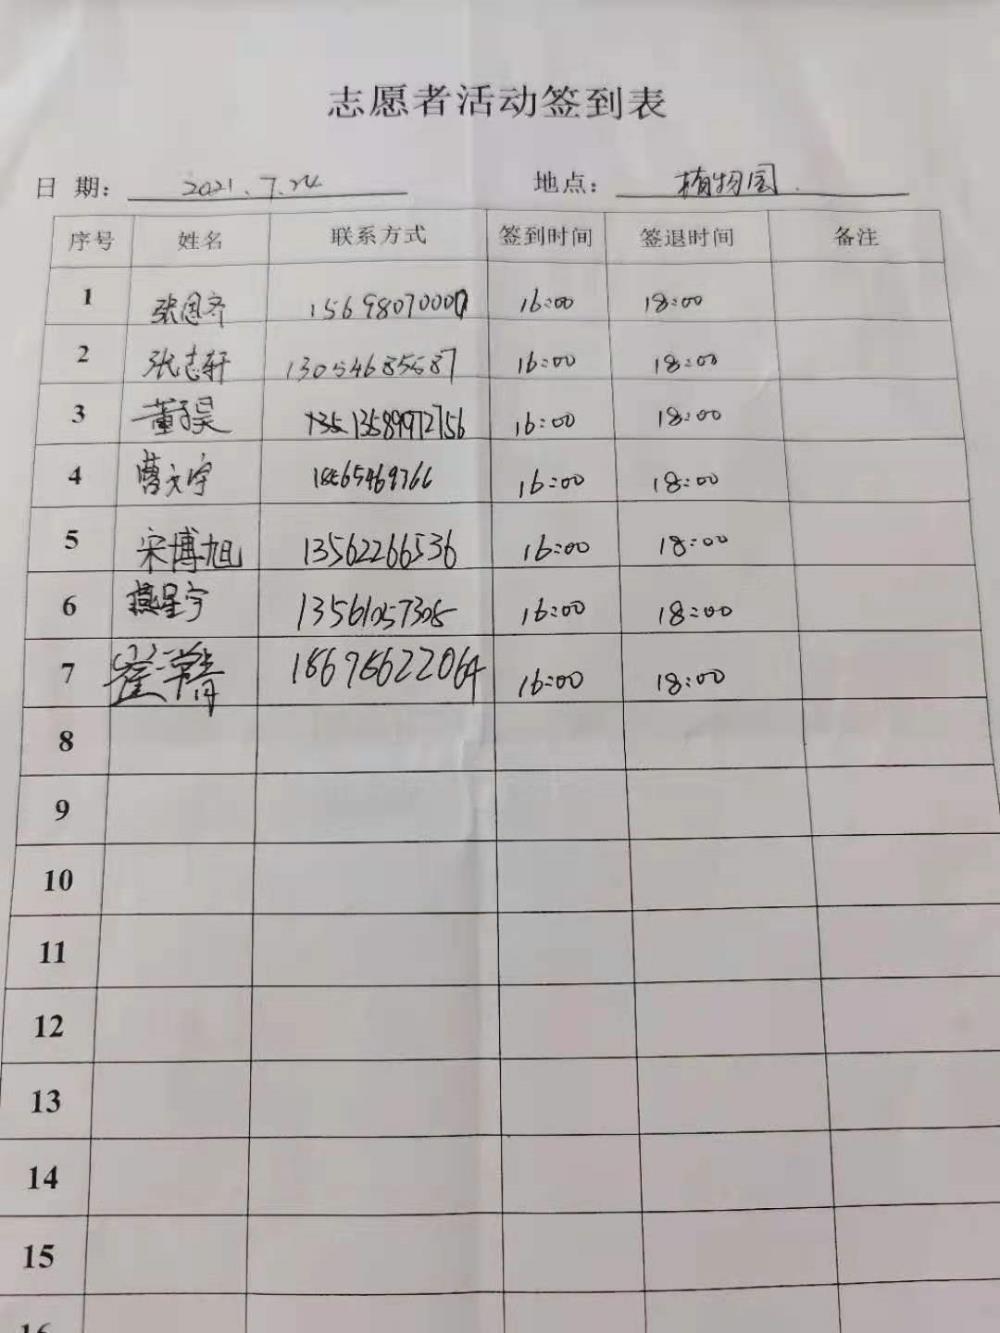 志愿者活动签到表
日 期: 2021.7.24 地点: 植物园
序号 姓名 联系方式 签到时间 签退时间 备注
1 张恩齐 16:00 18:00
2 张志轩 16:00 18:00
3 董昊 16:00 18:00
4 曹文宇 16:00 18:00
5 宋博旭 13562266536 16:00 18:00
6 燕星宇 13561057305 16:00 18:00
7 崔 18678622064 16:00 18:00
8
9
10
11
12
13
14
15
16